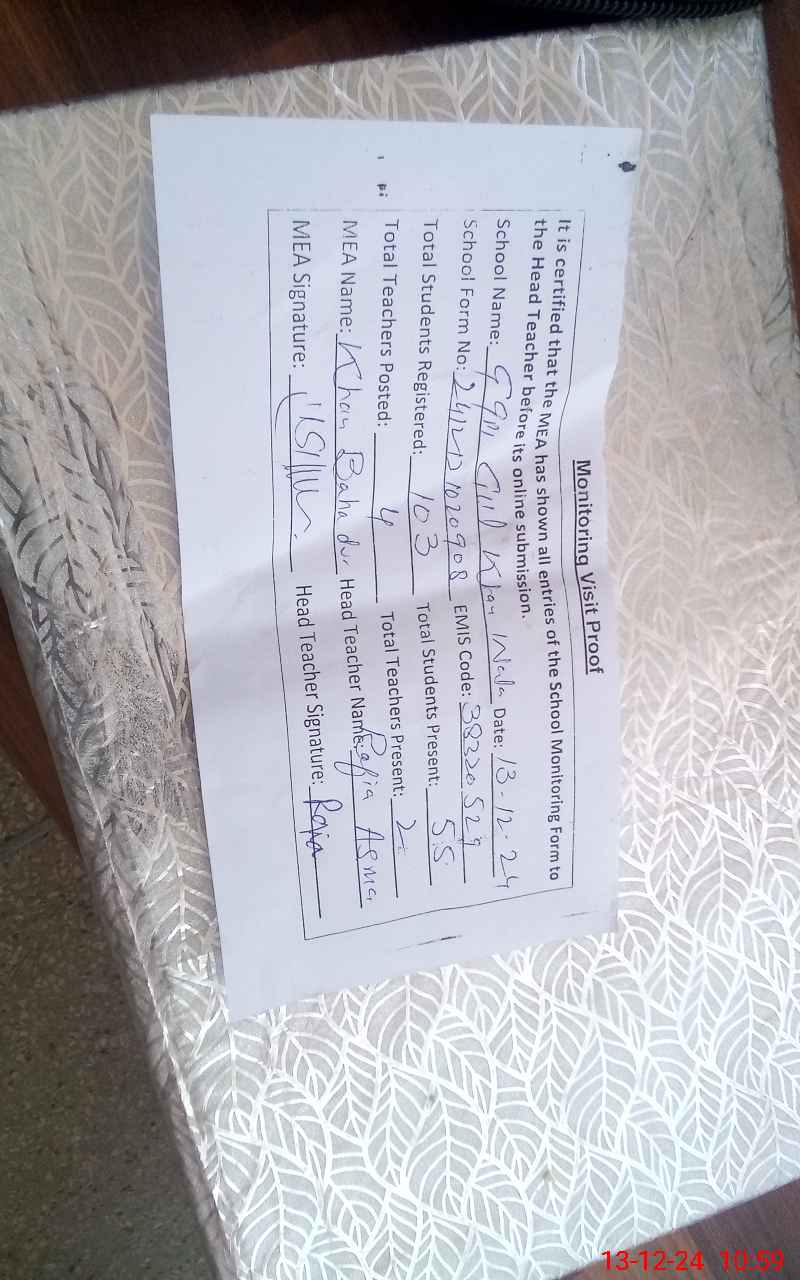 Monitoring Visit Proof
It is certified that the MEA has shown all entries of the School Monitoring Form to
the Head Teacher before its online submission.
School Name: GGPS Gul Khan Wala Date: 13-12-24
School Form No: EMIS Code: 38320529
Total Students Registered: 103 Total Students Present: 55
Total Teachers Posted: 4 Total Teachers Present: 2
MEA Name: Khan Bahadur Head Teacher Name: Rafia Asma
MEA Signature: Head Teacher Signature: Rafia
13-12-24 10:59